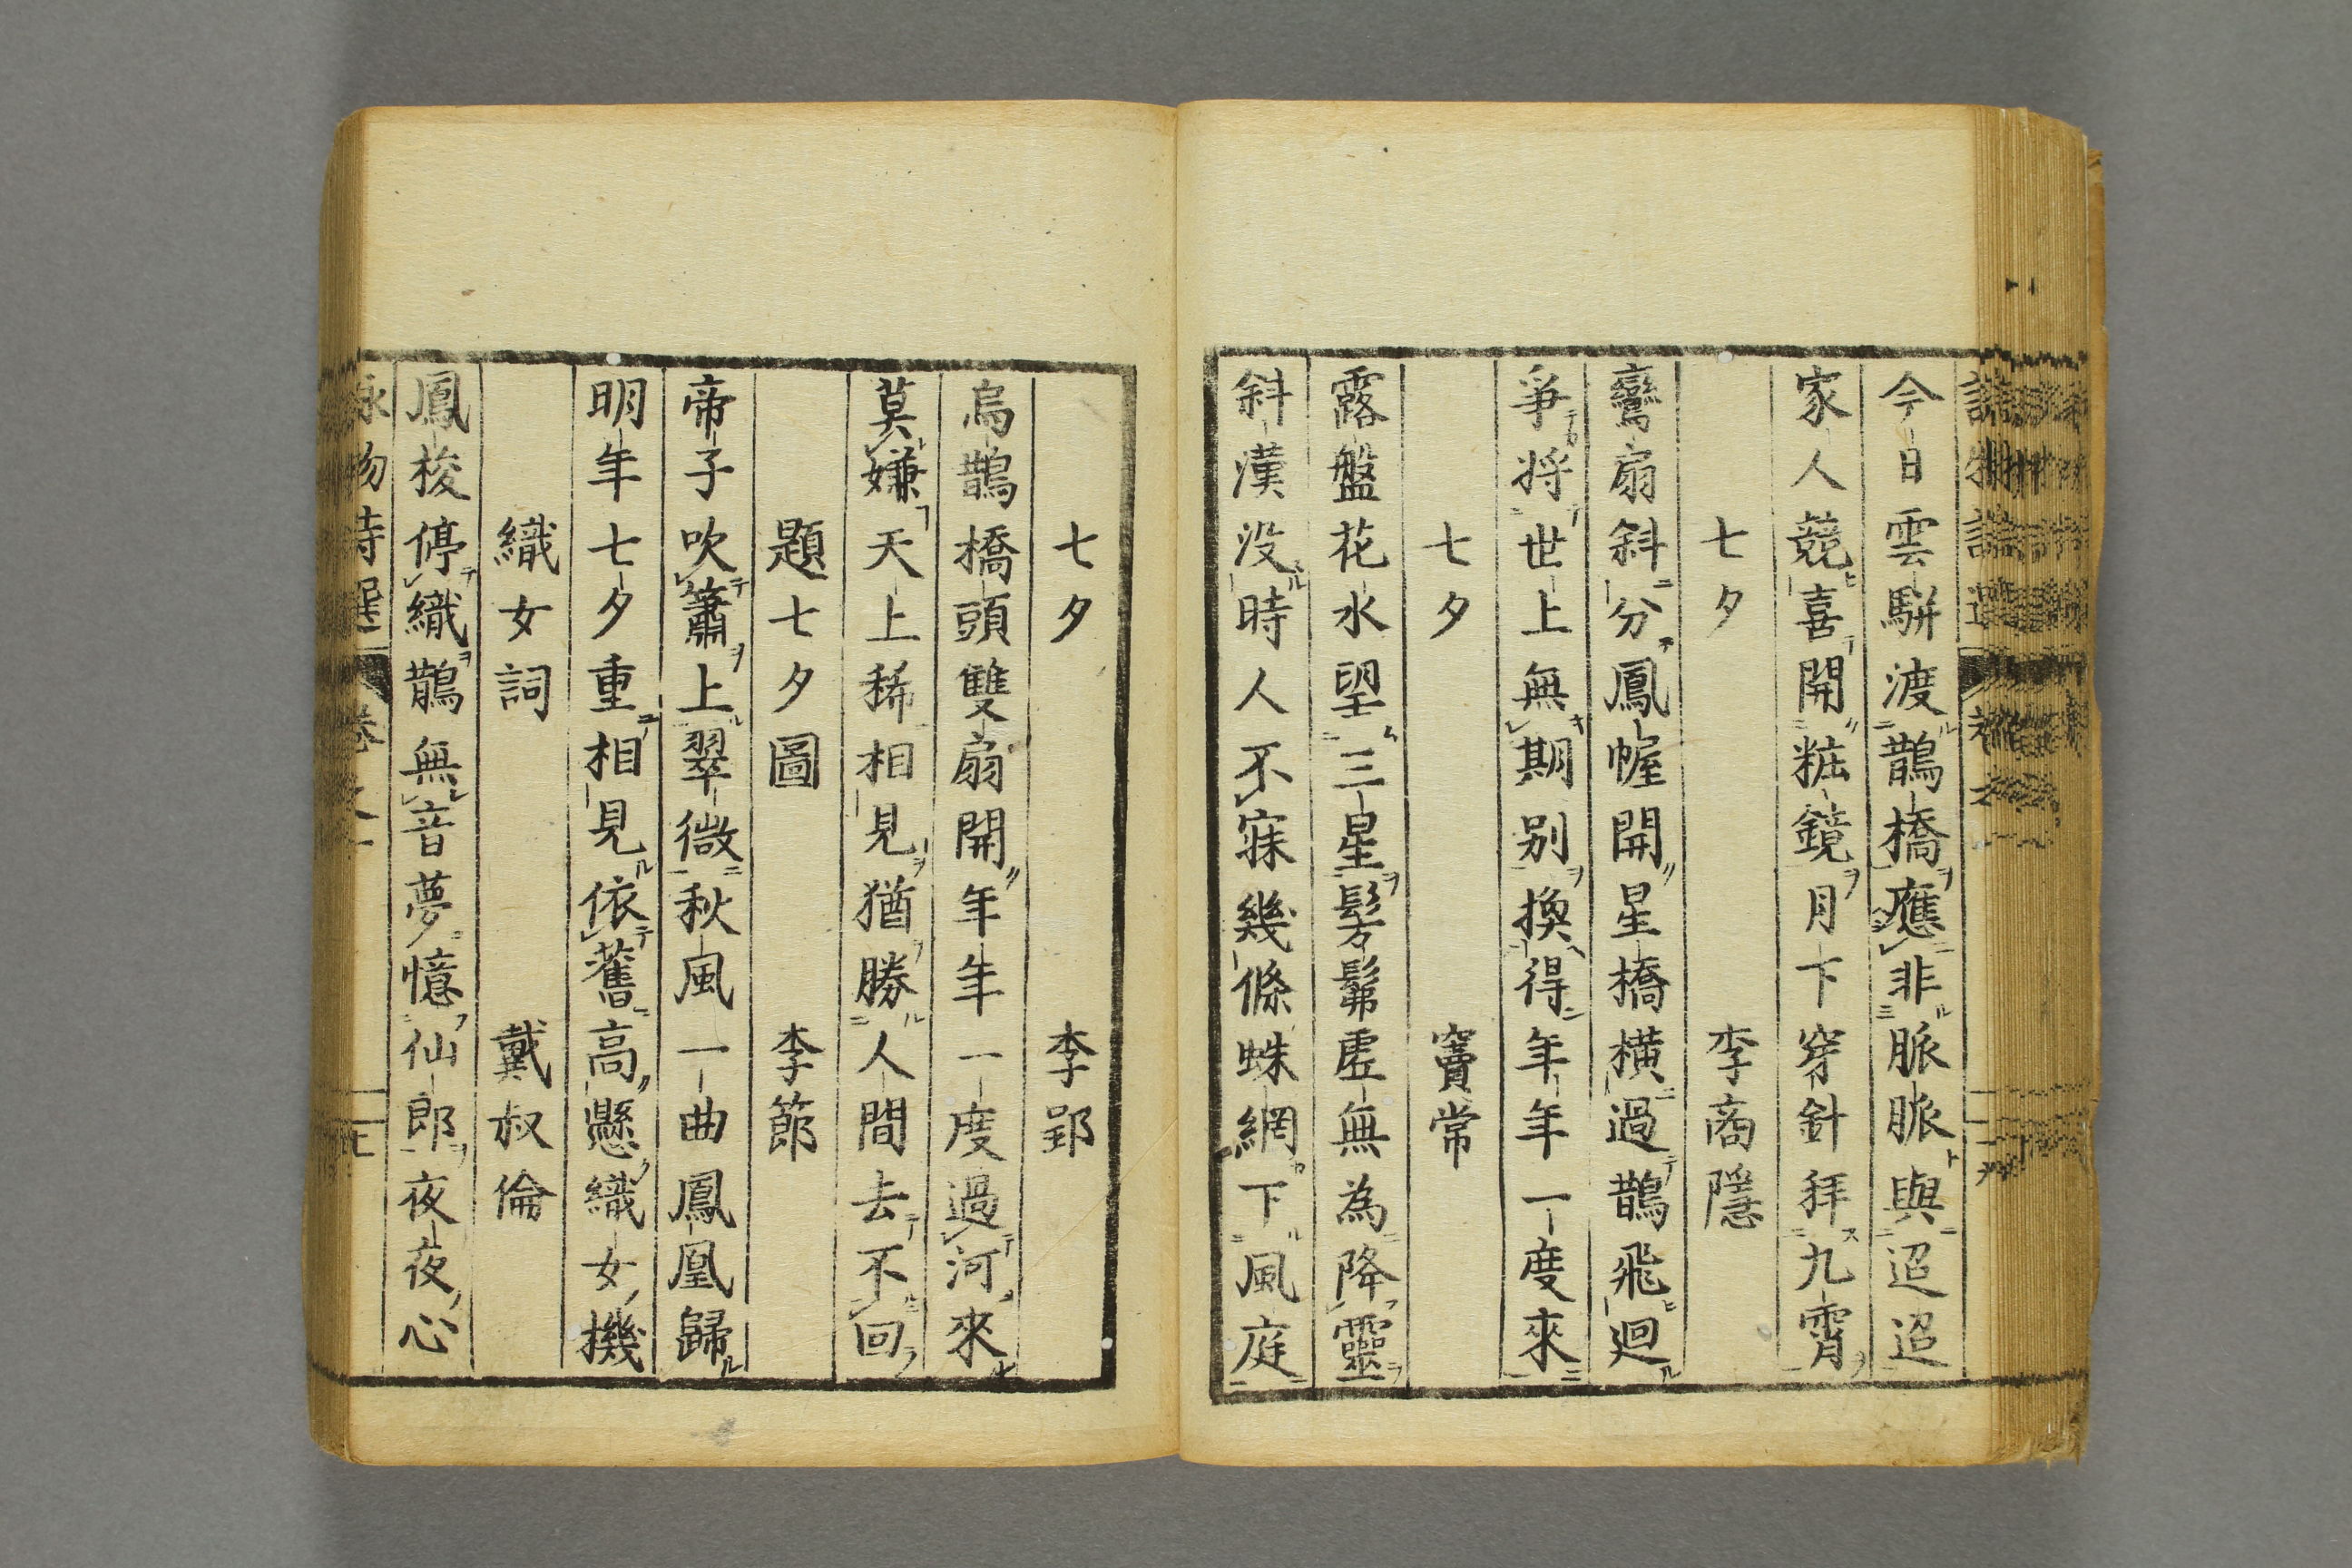 今日雲駢渡鵲橋應非脈脈與迢迢
家人競喜開粧鏡月下穿針拜九霄
七夕　李商隱
鸞扇斜分鳳幄開星橋橫過鵲飛迴
爭將世上無期別換得年年一度來
七夕　竇常
露盤花水望三星髣髴虛無為降靈
斜漢没時人不寐幾條蛛網下風庭
七夕　李郢
烏鵲橋頭雙扇開年年一度過河來
莫嫌天上稀相見猶勝人間去不回
題七夕圖　李節
帝子吹簫上翠微秋風一曲鳳凰歸
明年七夕重相見依舊高懸織女機
織女詞　戴叔倫
鳳梭停織鵲無音夢憶仙郎夜夜心
詠物詩選　卷之